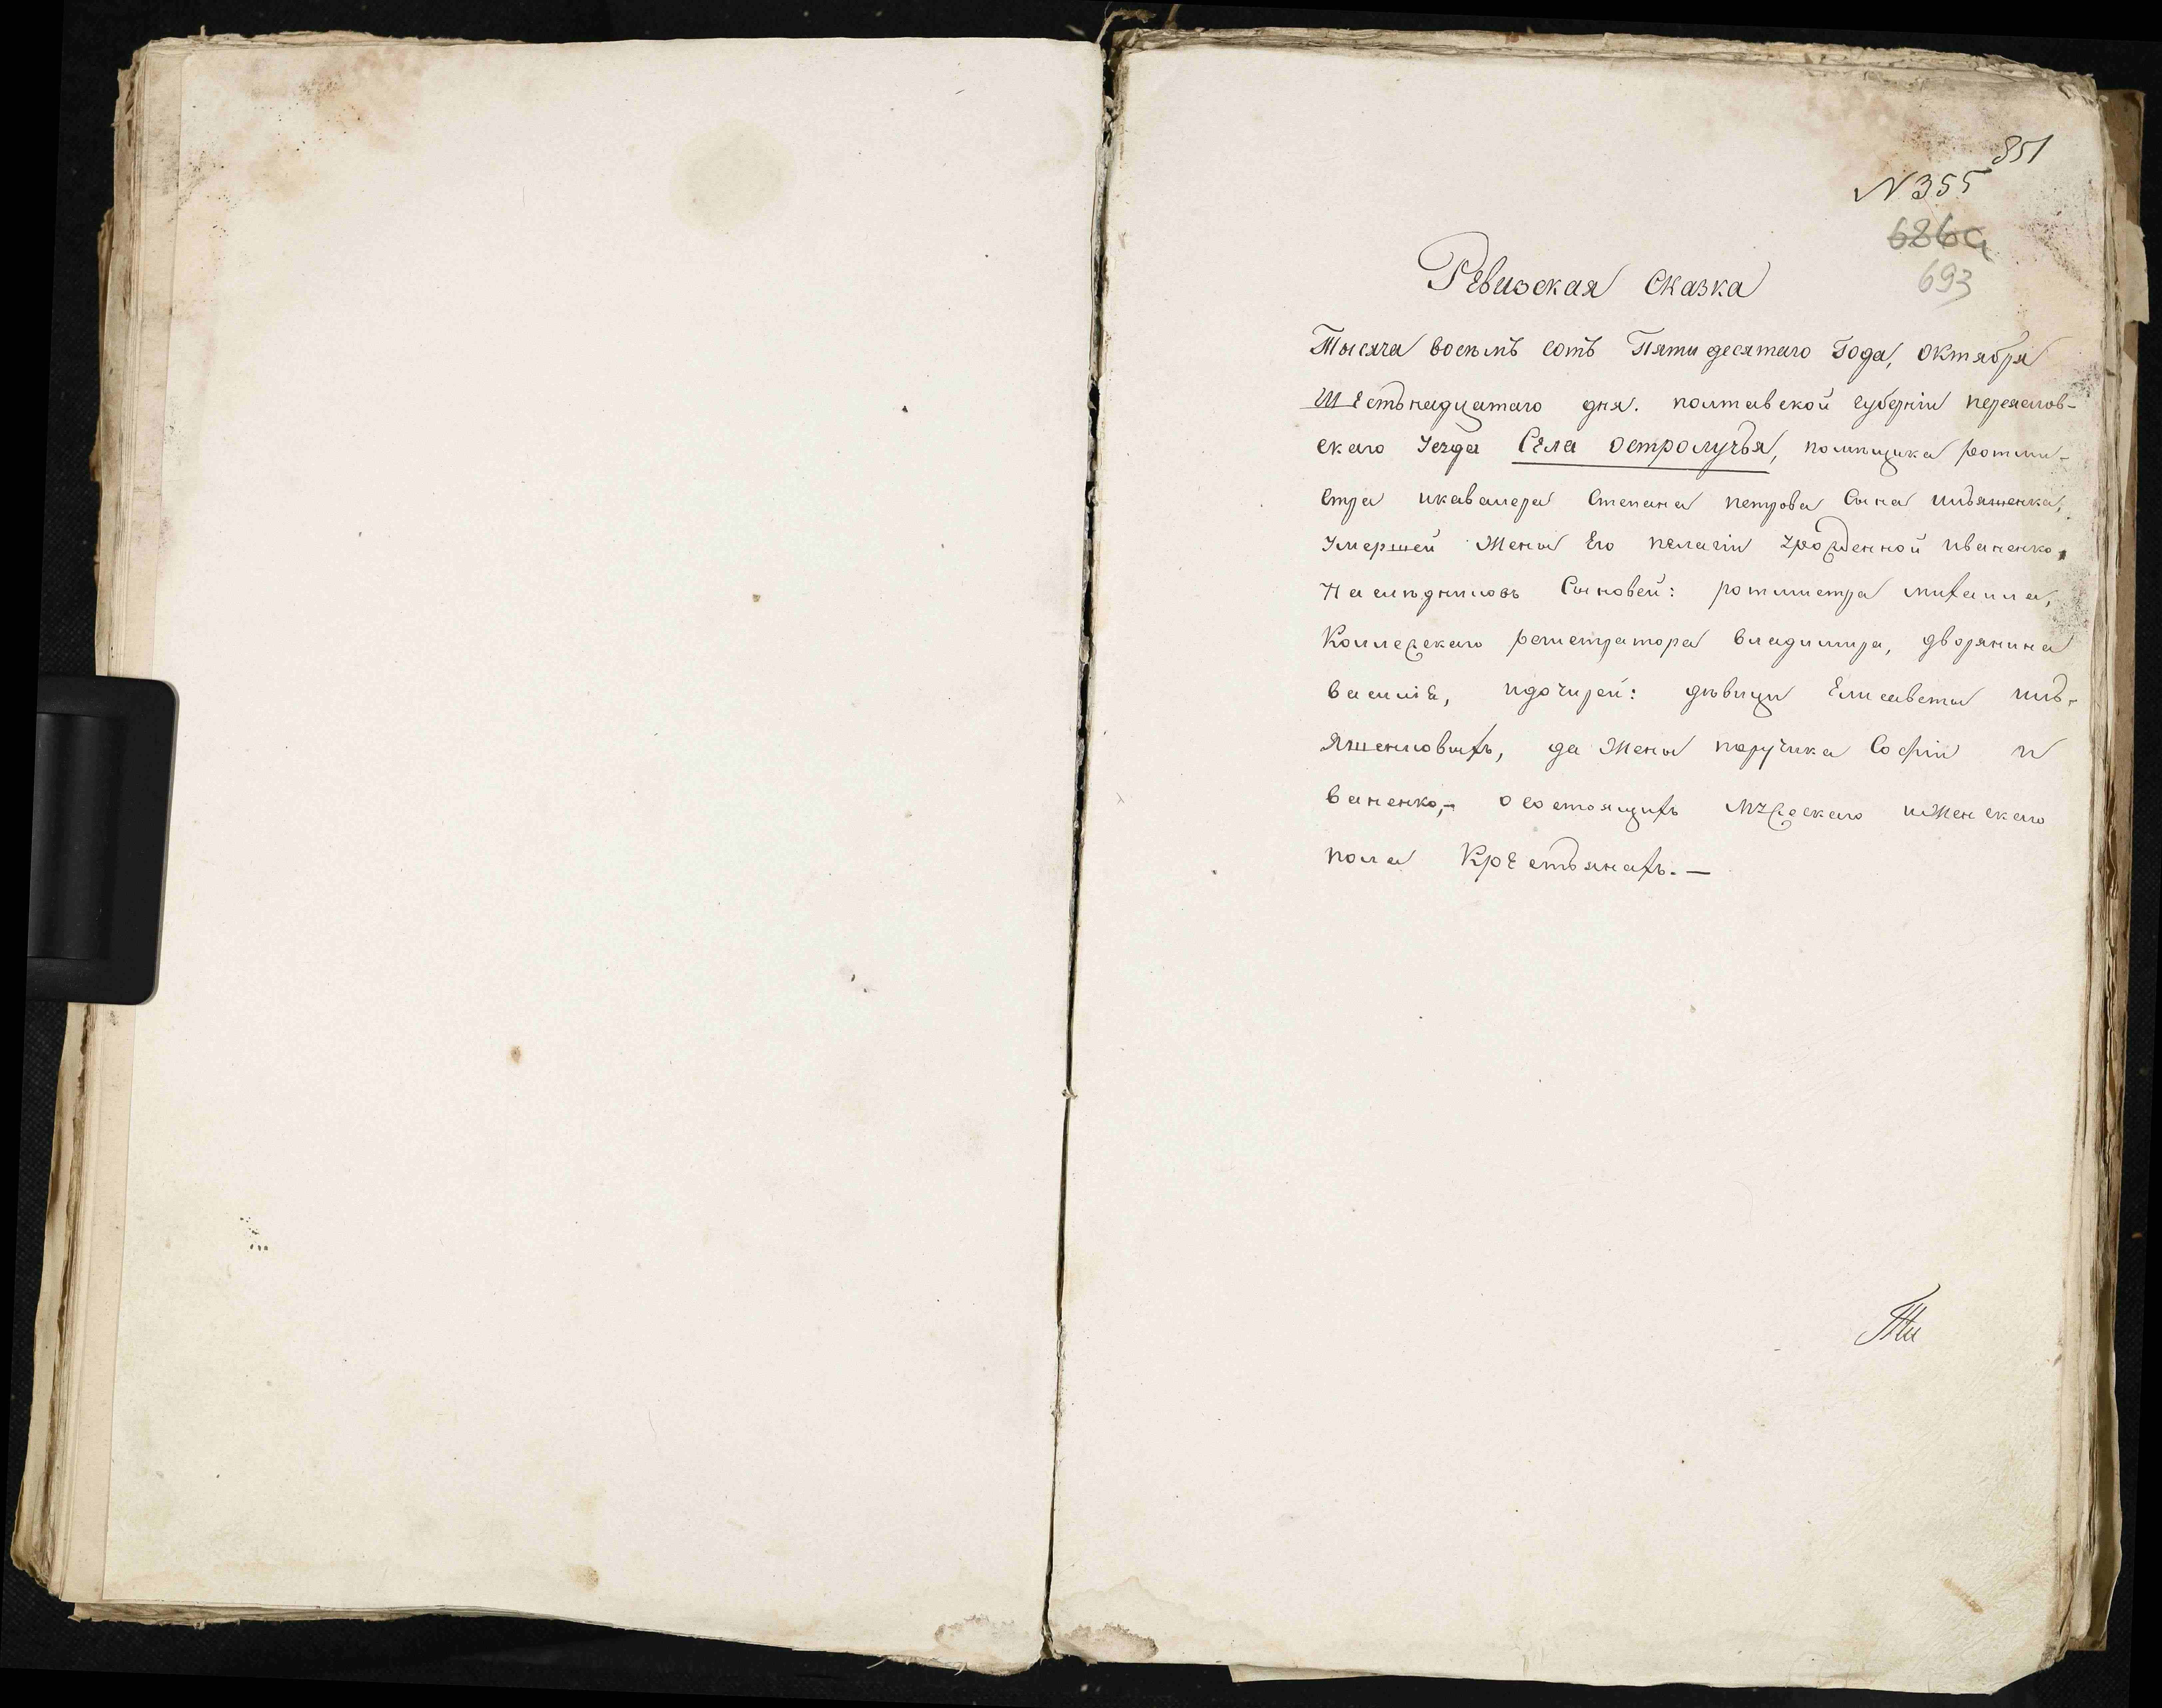 851
N 355
686а
693
Ревизская Сказка
Тысяча восемь сотъ Пятидесятаго Года, октября
Шестьнадцатаго дня. полтавской губерніи переяслов-
скаго уезда Села остролучья, помѣщика ротми-
стра икавалера Степана петрова Сына ильяшенка,
умершей Жены Его пелагіи урожденной иваненко,
Наслѣдниковъ Сыновей: ротмистра михаила,
Коллежскаго регистратора владимира, дворянина
василіе, идочирей: дѣвици Елисаветы иль-
яшенковихъ, да Жены поручика Софіи и
ваненко,- о состоящихъ мужескаго иЖенскаго
пола Крестьянахъ. —